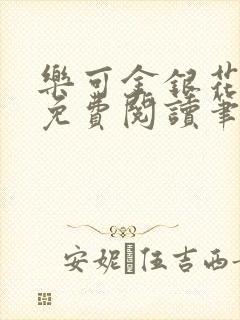 樂可金銀花
免費閱讀筆
安妮 伍吉西